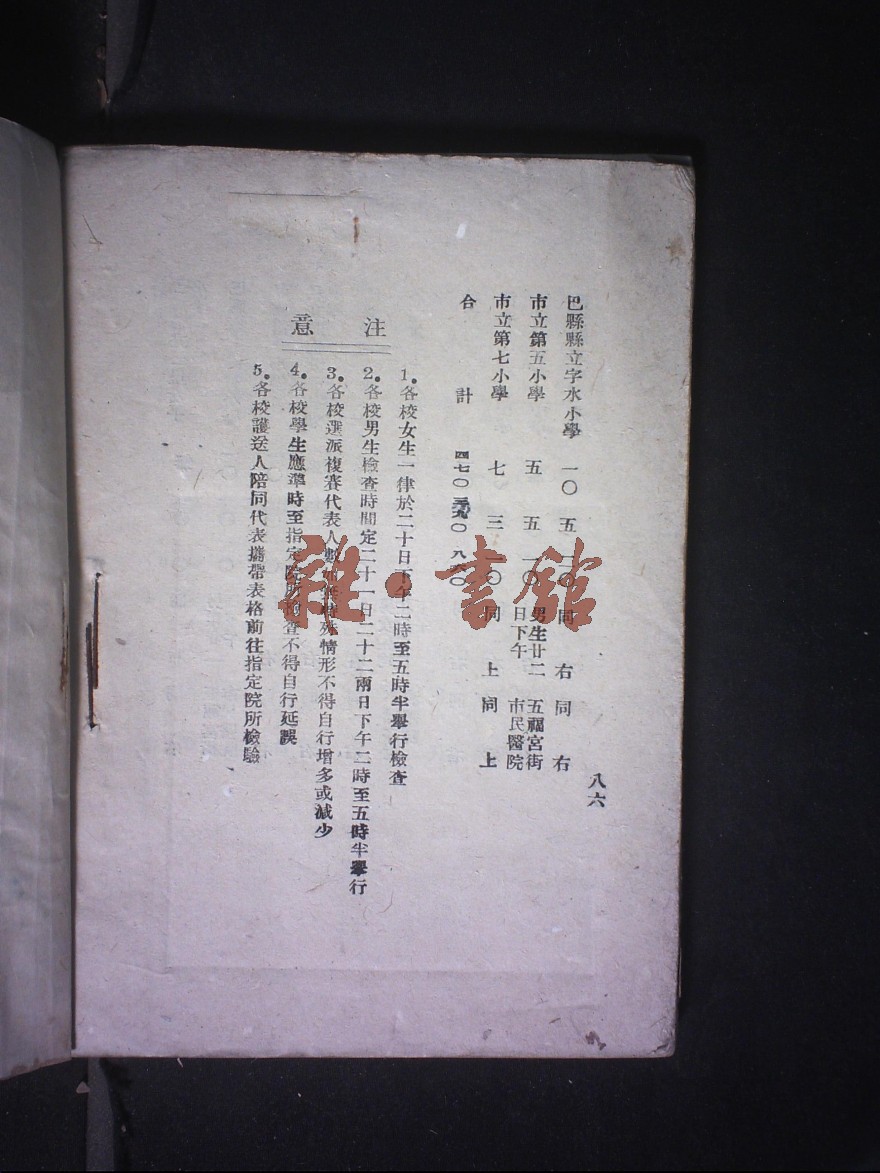 八六
巴縣縣立字水小學 一〇 五 同 右 同 右
市立第五小學 五 五 一〇 男生廿二日下午 五福宮街市民醫院
市立第七小學 七 三 一〇 同 上 同 上
合 計 四七〇 〇 八
注 意
1.各校女生一律於二十日下午二時至五時半舉行檢查
2.各校男生檢查時間定二十一日二十二兩日下午二時至五時半舉行
3.各校選派複賽代表人數 情形不得自行增多或減少
4.各校學生應準時至指定院所檢查不得自行延誤
5.各校護送人陪同代表攜帶表格前往指定院所檢驗
雜·書館